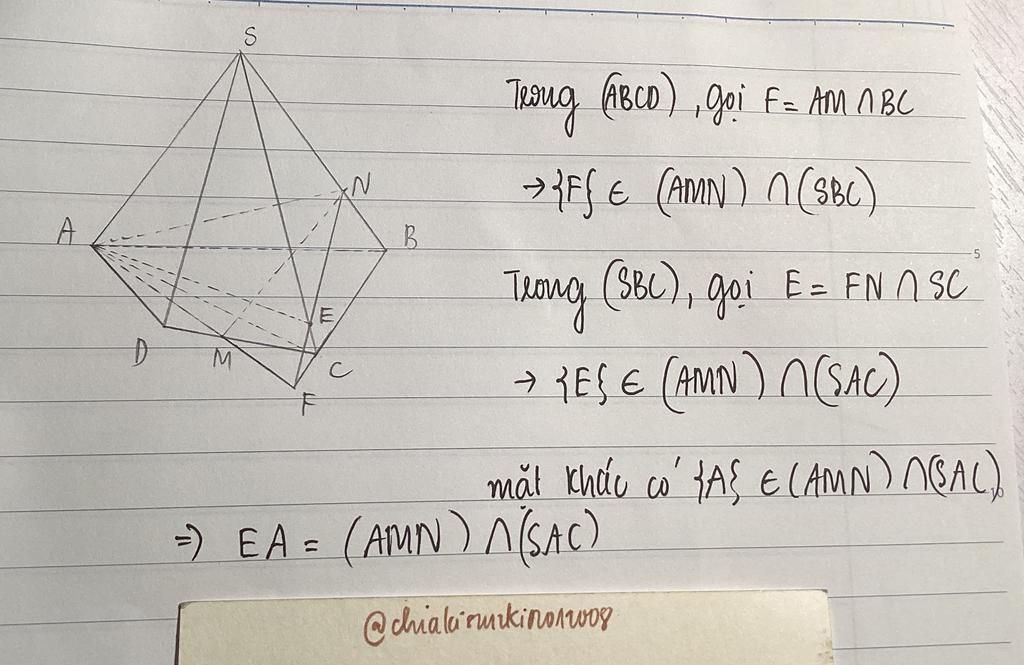 S
Trong (ABCD), gọi F = AM ∩ BC
N
→ {F} ∈ (AMN) ∩ (SBC)
A
B
5
Trong (SBC), gọi E = FN ∩ SC
E
D
M
C
F
→ {E} ∈ (AMN) ∩ (SAC)
mặt khác có {A} ∈ (AMN) ∩ (SAC)
⇒ EA = (AMN) ∩ (SAC)